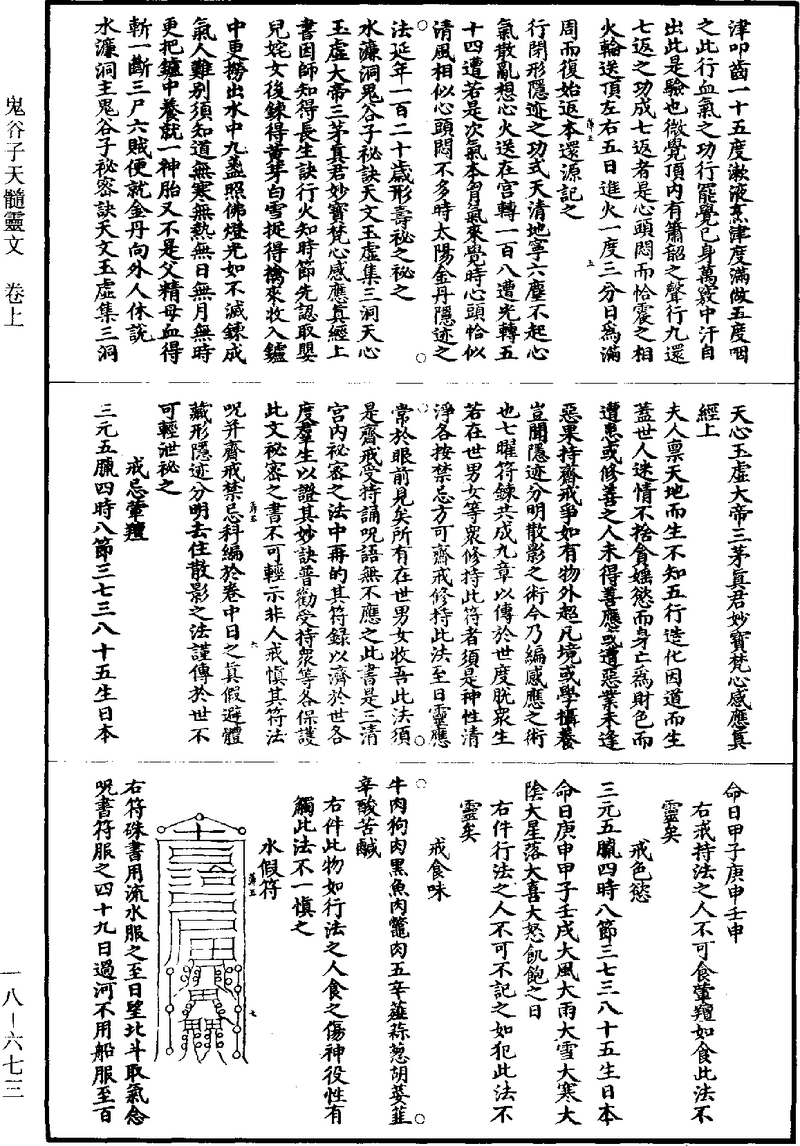 鬼谷子天髓靈文　卷上
一八—六七三
津叩齒一十五度漱液烹津度滿做五度咽
之此行血氣之功行罷覺己身萬竅中汗自
出此是驗也微覺頂內有簫韶之聲行九還
七返之功成七返者是心頭悶而恰震之相
火輪送頂左右五日進火一度三分日為滿
周而復始返本還源記之
行閉形隱迹之功式天清地寧六塵不起心
氣散亂想心火送在宮轉一百八遭先轉五
十四遭若是次氣本胷氣來覺時心頭恰似
清風相似心頭悶不多時太陽金丹隱迹之
法延年一百二十歲形壽祕之祕之
水濂洞鬼谷子祕訣天文玉虛集三洞天心
玉虛大帝三茅真君妙寶梵心感應真經上
書因師知得長生訣行火知時節先認取嬰
兒姹女後鍊得黃芽白雪捉得擒來收入鑪
中更撈出水中九盞照佛燈光如不滅鍊成
氣人難別須知道無寒無熱無日無月無時
更把鑪中養就一神胎又不是父精母血得
斬一斷三尸六賊便就金丹向外人休說
水濂洞主鬼谷子祕密訣天文玉虛集三洞
天心玉虛大帝三茅真君妙寶梵心感應真
經上
夫人禀天地而生不知五行造化因道而生
蓋世人迷情不捨貪婬慾而身亡為財色而
遭患或修善之人未得善應或遭惡業未逢
惡果持齋戒爭如有物外超凡境或學攝養
豈聞隱迹分明散影之術今乃編感應之術
也七曜符鍊共成九章以傳於世度脫衆生
若在世男女等衆修持此符者須是神性清
淨各按禁忌方可齋戒修持此法至日靈應
常於眼前見矣所有在世男女收吾此法須
是齋戒受持誦呪語無不應之此書是三清
宮內祕密之法中再的其符錄以濟於世各
度羣生以證其妙訣普勸受持衆等各保護
此文祕密之書不可輕示非人戒慎其符法
呪并齋戒禁忌科編於卷中日之真假避體
藏形隱迹分明去住散影之法謹傳於世不
可輕泄祕之
戒忌葷羶
三元五臘四時八節三七三八十五生日本
命日甲子庚申壬申
右戒持法之人不可食葷羶如食此法不
靈矣
戒色慾
三元五臘四時八節三七三八十五生日本
命日庚申甲子壬戌大風大雨大雪大寒大
陰大星落大喜大怒飢飽之日
右件行法之人不可不記之如犯此法不
靈矣
戒食味
牛肉狗肉黑魚肉鼈肉五辛薤蒜葱胡荽韮
辛酸苦鹹
右件此物如行法之人食之傷神役性有
觸此法不一慎之
水假符
右符硃書用流水服之至日望北斗取氣念
呪書符服之四十九日過河不用船服至百